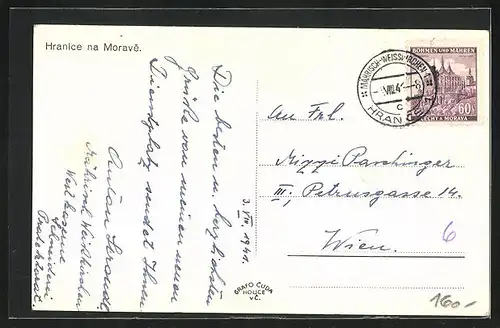 Hranice na Moravě.
Die besten u. herzlichsten
Grüße von meinem neuen
Dienstplatz sendet Ihnen
Anton
Mährisch Weißkirchen
Protektorat.
3. VIII. 1941.
GRAFO ČUDA
HOLICE
v Č.
MÄHRISCH-WEISSKIRCHEN 1
HRANICE
c
BÖHMEN UND MÄHREN
60
ČECHY A MORAVA
An Frl.
Mizzi Parchinger
III, Petrusgasse 14.
Wien.
6
160.-